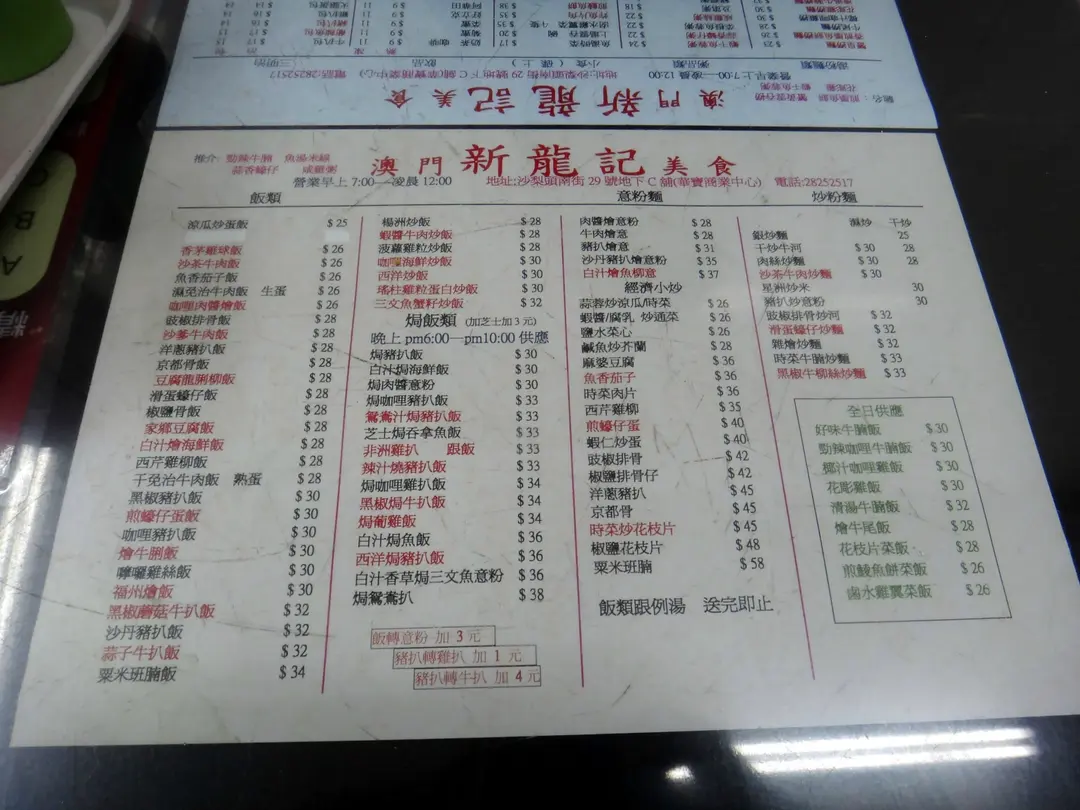 推介: 勁辣牛腩 魚湯米線
蒜香蠔仔 咸瘦粥
澳門 新龍記 美食
營業早上 7:00—凌晨 12:00 地址:沙梨頭南街 29 號地下 C 舖(華寶商業中心) 電話:28252517
飯類
涼瓜炒蛋飯 $ 25
香茅雞球飯 $ 26
沙茶牛肉飯 $ 26
魚香茄子飯 $ 26
濕免治牛肉飯 生蛋 $ 26
咖哩肉醬燴飯 $ 26
豉椒排骨飯 $ 28
沙爹牛肉飯 $ 28
洋蔥豬扒飯 $ 28
京都骨飯 $ 28
豆腐龍脷柳飯 $ 28
滑蛋蠔仔飯 $ 28
椒鹽骨飯 $ 28
家鄉豆腐飯 $ 28
白汁燴海鮮飯 $ 28
西芹雞柳飯 $ 28
干免治牛肉飯 熟蛋 $ 28
黑椒豬扒飯 $ 30
煎蠔仔蛋飯 $ 30
咖哩豬扒飯 $ 30
燴牛脷飯 $ 30
嚤囉雞絲飯 $ 30
福州燴飯 $ 30
黑椒蘑菇牛扒飯 $ 32
沙丹豬扒飯 $ 32
蒜子牛扒飯 $ 32
粟米班腩飯 $ 34
楊洲炒飯 $ 28
蝦醬牛肉炒飯 $ 28
菠蘿雞粒炒飯 $ 28
咖哩海鮮炒飯 $ 30
西洋炒飯 $ 30
瑤柱雞粒蛋白炒飯 $ 30
三文魚蟹籽炒飯 $ 32
焗飯類 (加芝士加 3 元)
晚上 pm6:00—pm10:00 供應
焗豬扒飯 $ 30
白汁焗海鮮飯 $ 30
焗肉醬意粉 $ 30
焗咖哩豬扒飯 $ 33
鴛鴦汁焗豬扒飯 $ 33
芝士焗吞拿魚飯 $ 33
非洲雞扒 跟飯 $ 33
辣汁燒豬扒飯 $ 33
焗咖哩雞扒飯 $ 34
黑椒焗牛扒飯 $ 34
焗葡雞飯 $ 34
白汁焗魚飯 $ 36
西洋焗豬扒飯 $ 36
白汁香草焗三文魚意粉 $ 36
焗鴛鴦扒 $ 38
飯轉意粉 加 3 元
豬扒轉雞扒 加 1 元
豬扒轉牛扒 加 4 元
意粉麵
肉醬燴意粉 $ 28
牛肉燴意 $ 28
豬扒燴意 $ 31
沙丹豬扒燴意粉 $ 35
白汁燴魚柳意 $ 37
經濟小炒
蒜蓉炒涼瓜/時菜 $ 26
蝦醬/腐乳 炒通菜 $ 26
鹽水菜心 $ 26
鹹魚炒芥蘭 $ 28
麻婆豆腐 $ 36
魚香茄子 $ 36
時菜肉片 $ 36
西芹雞柳 $ 35
煎蠔仔蛋 $ 40
蝦仁炒蛋 $ 40
豉椒排骨 $ 42
椒鹽排骨仔 $ 42
洋蔥豬扒 $ 45
京都骨 $ 45
時菜炒花枝片 $ 45
椒鹽花枝片 $ 48
粟米班腩 $ 58
飯類跟例湯 送完即止
炒粉麵
濕炒 干炒
銀炒麵 25
干炒牛河 $ 30 28
肉絲炒麵 $ 30 28
沙茶牛肉炒麵 $ 30
星洲炒米 30
豬扒炒意粉 30
豉椒排骨炒河 $ 32
滑蛋蠔仔炒麵 $ 32
雜燴炒麵 $ 32
時菜牛腩炒麵 $ 33
黑椒牛柳絲炒麵 $ 33
全日供應
好味牛腩飯 $ 30
勁辣咖哩牛腩飯 $ 30
椰汁咖哩雞飯 $ 30
花彫雞飯 $ 30
清湯牛腩飯 $ 32
燴牛尾飯 $ 28
花枝片菜飯 $ 28
煎鯪魚餅菜飯 $ 26
鹵水雞翼菜飯 $ 26
澳門 新龍記 美食
營業早上 7:00—凌晨 12:00 地址:沙梨頭南街 29 號地下 C 舖(華寶商業中心) 電話:28252517